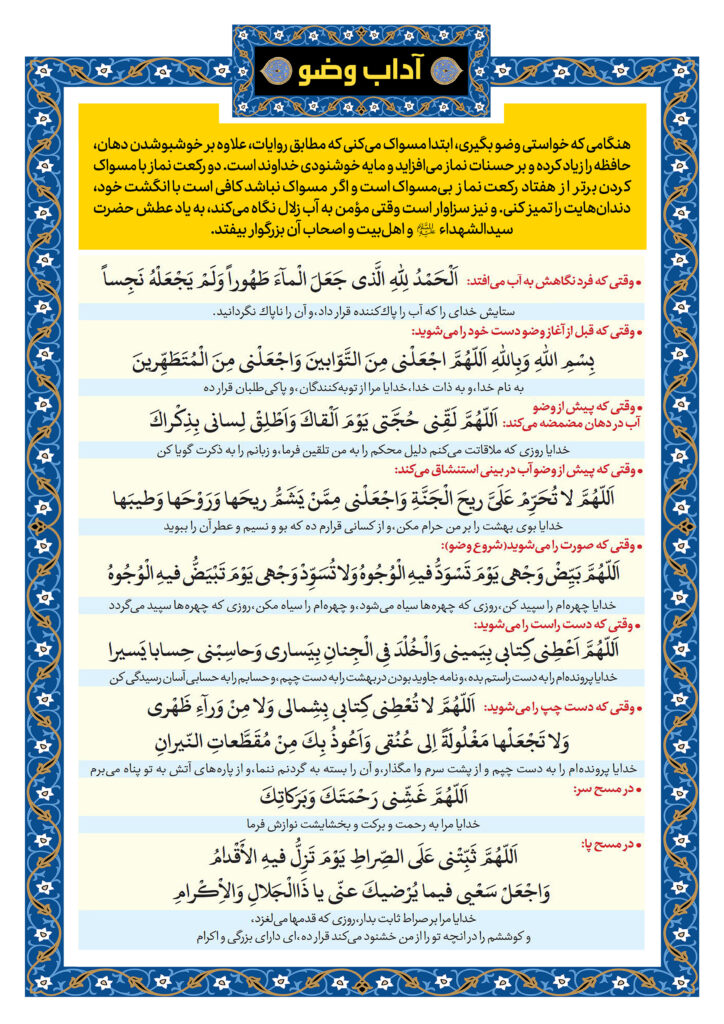 آداب وضو
هنگامی که خواستی وضو بگیری، ابتدا مسواک می‌کنی که مطابق روایات، علاوه بر خوشبوشدن دهان،
حافظه را زیاد کرده و بر حسنات نماز می‌افزاید و مایه خوشنودی خداوند است. دو رکعت نماز با مسواک
کردن برتر از هفتاد رکعت نماز بی‌مسواک است و اگر مسواک نباشد کافی است با انگشت خود،
دندان‌هایت را تمیز کنی. و نیز سزاوار است وقتی مؤمن به آب زلال نگاه می‌کند، به یاد عطش حضرت
سیدالشهداء و اهل‌بیت و اصحاب آن بزرگوار بیفتد.
• وقتی که فرد نگاهش به آب می‌افتد: اَلْحَمْدُ لِلّٰهِ الَّذى جَعَلَ الْمآءَ طَهُوراً وَلَمْ يَجْعَلْهُ نَجِساً
ستایش خدای را که آب را پاك‌کننده قرار داد، و آن را ناپاك نگردانید.
• وقتی که قبل از آغاز وضو دست خود را می‌شوید:
بِسْمِ اللهِ وَبِاللهِ اَللّهُمَّ اجْعَلْنى مِنَ التَّوّابينَ وَاجْعَلْنى مِنَ الْمُتَطَهِّرينَ
به نام خدا، و به ذات خدا، خدایا مرا از توبه‌کنندگان، و پاکی‌طلبان قرار ده
• وقتی که پیش از وضو
آب در دهان مضمضه می‌کند: اَللّهُمَّ لَقِّنى حُجَّتى يَوْمَ اَلْقاكَ وَاَطْلِقْ لِسانى بِذِكْراكَ
خدایا روزی که ملاقاتت می‌کنم دلیل محکم را به من تلقین فرما، و زبانم را به ذکرت گویا کن
• وقتی که پیش از وضو آب در بینی استنشاق می‌کند:
اَللّهُمَّ لا تُحَرِّمْ عَلَىَّ ريحَ الْجَنَّةِ وَاجْعَلْنى مِمَّنْ يَشَمُّ ريحَها وَرَوْحَها وَطيبَها
خدایا بوی بهشت را بر من حرام مکن، و از کسانی قرارم ده که بو و نسیم و عطر آن را ببوید
• وقتی که صورت را می‌شوید(شروع وضو):
اَللّهُمَّ بَيِّضْ وَجْهى يَوْمَ تَسْوَدُّ فيهِ الْوُجُوهُ وَلاتُسَوِّدْ وَجْهى يَوْمَ تَبْيَضُّ فيهِ الْوُجُوهُ
خدایا چهره‌ام را سپید کن، روزی که چهره‌ها سیاه می‌شود، و چهره‌ام را سیاه مکن، روزی که چهره‌ها سپید می‌گردد
• وقتی که دست راست را می‌شوید:
اَللّهُمَّ اَعْطِنى كِتابى بِيَمينى وَالْخُلْدَ فِى الْجِنانِ بِيَسارى وَحاسِبْنى حِسابا يَسيرا
خدایا پرونده‌ام را به دست راستم بده، و نامه جاوید بودن در بهشت را به دست چپم، و حسابم را به حسابی آسان رسیدگی کن
• وقتی که دست چپ را می‌شوید: اَللّهُمَّ لا تُعْطِنى كِتابى بِشِمالى وَلا مِنْ وَرآءِ ظَهْرى
وَلا تَجْعَلْها مَغْلُولَةً اِلى عُنُقى وَاَعُوذُ بِكَ مِنْ مُقَطَّعاتِ النّيرانِ
خدایا پرونده‌ام را به دست چپم و از پشت سرم وا مگذار، و آن را بسته به گردنم ننما، و از پاره‌های آتش به تو پناه می‌برم
• در مسح سر: اَللّهُمَّ غَشِّنى رَحْمَتَكَ وَبَرَكاتِكَ
خدایا مرا به رحمت و برکت و بخشایشت نوازش فرما
• در مسح پا: اَللّهُمَّ ثَبِّتْنى عَلَى الصِّراطِ يَوْمَ تَزِلُّ فيهِ الأَقْدامُ
وَاجْعَلْ سَعْيى فيما يُرْضيكَ عَنّى يا ذَاالْجَلالِ وَالْاِكْرامِ
خدایا مرا بر صراط ثابت بدار، روزی که قدمها می‌لغزد،
و کوششم را در آنچه تو را از من خشنود می‌کند قرار ده، ای دارای بزرگی و اکرام